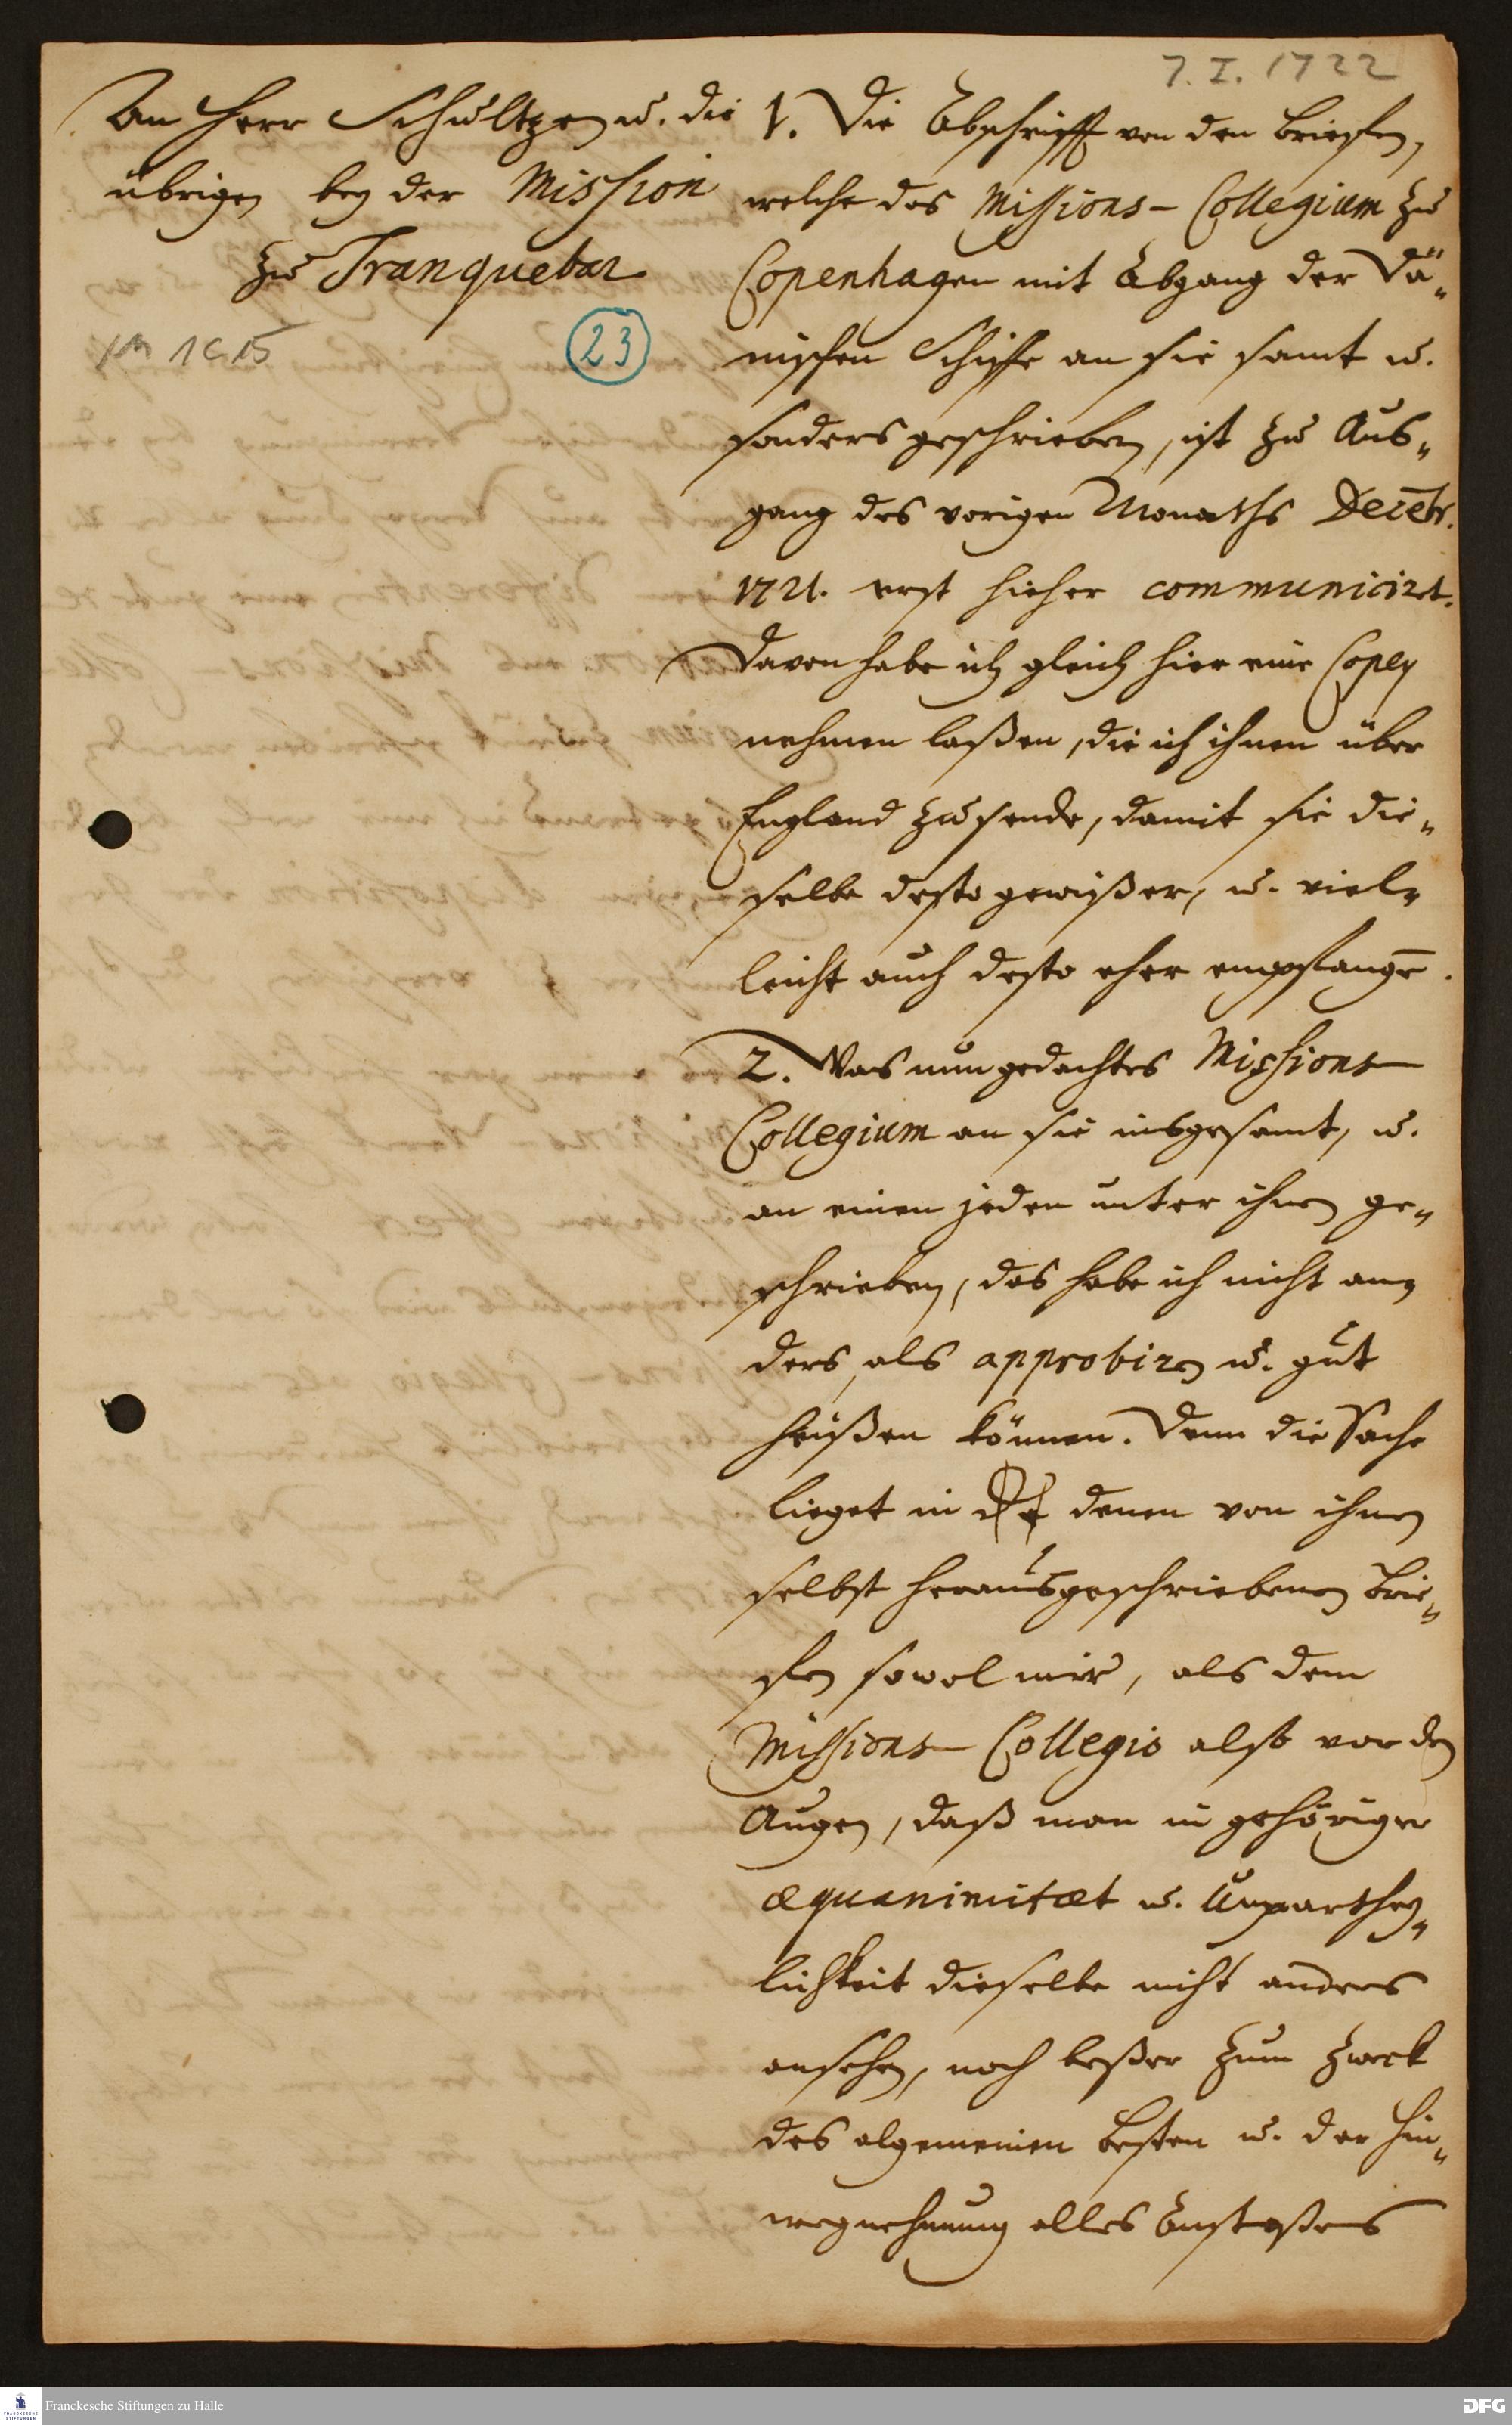 7. I. 1722
An Herr Schultzen u. die
übrigen bey der Mission
zu Tranquebar
1 C 15
23
1. Die Abschrifft von den Briefen,
welche das Missions-Collegium zu
Copenhagen mit Abgang der Dä„
nischen Schiffe an sie samt u.
sonders geschrieben, ist zu Aus„
gang des vorigen Monaths Decebr.
1721. erst hieher communiciret.
Davon habe ich gleich hier eine Copey
nehmen laßen, die ich ihnen über
England zusende, damit sie die„
selbe desto gewißer, u. viel„
leicht auch desto eher empfangē.
2. Was nun gedachtes Missions-
Collegium an sie insgesamt, u.
an einen jeden unter ihnen ge„
schrieben, das habe ich nicht an„
ders, als approbiren u. gut
heißen können. Denn die Sache
lieget in denen von ihnen
selbst herausgeschriebenen Brie„
fen sowol mir, als dem
Missions-Collegio also vor den
Augen, daß man in gehöriger
æquanimitæt u. Unparthey„
lichkeit dieselbe nicht anders
ansehen, noch beßer zum Zweck
des algemeinen Besten u. der Hin„
wegnehmung alles Anstoßens
Franckesche Stiftungen zu Halle
DFG